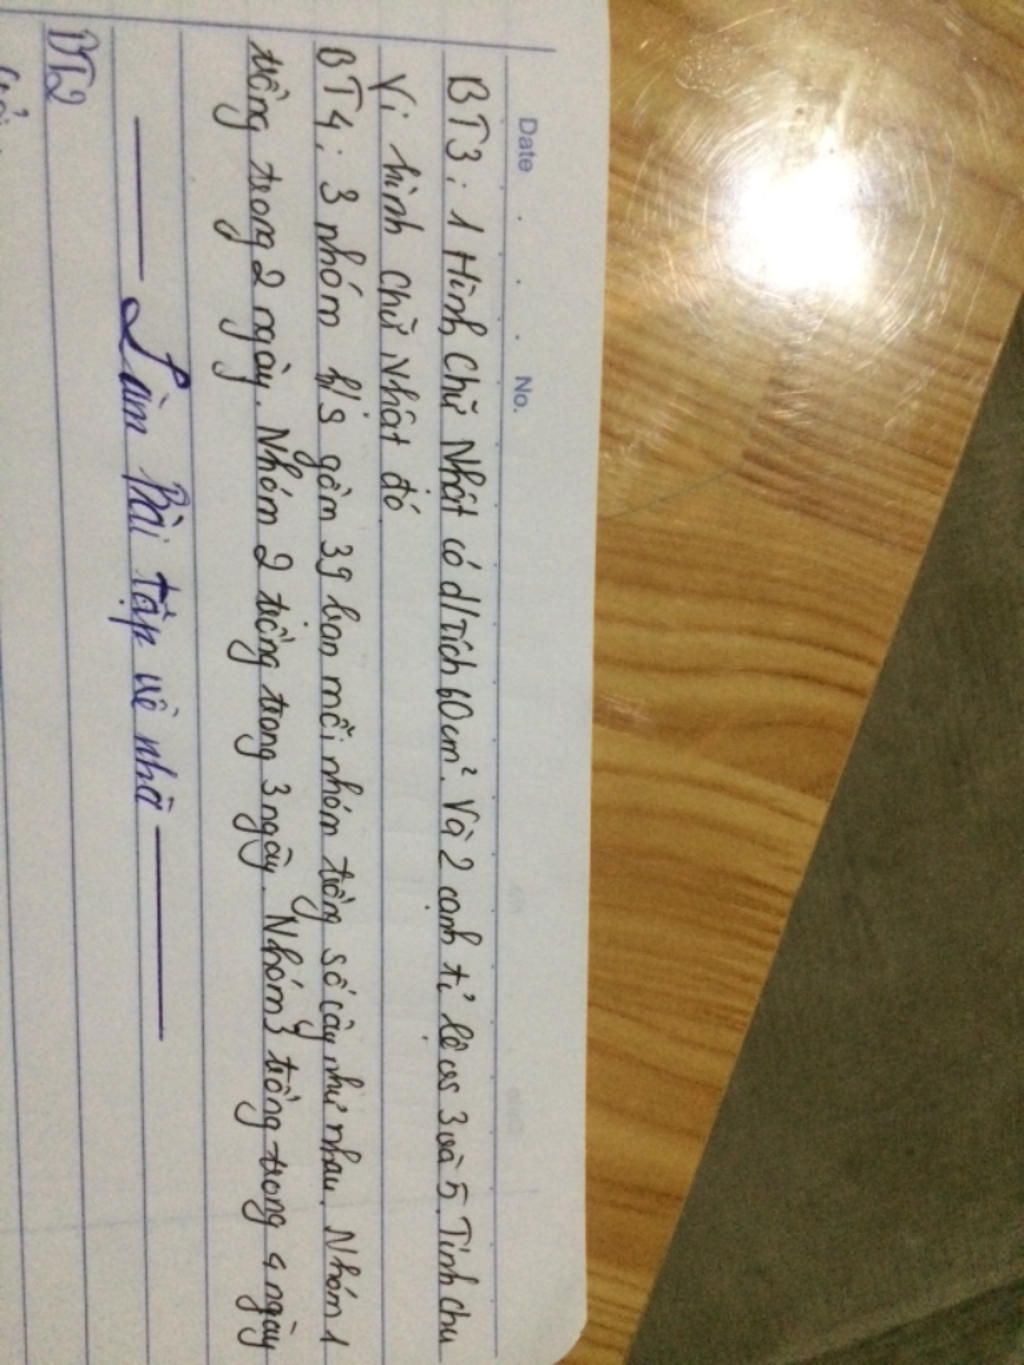 Date No.
BT3: 1 Hình Chữ Nhật có d/tích 60cm². Và 2 cạnh tỉ lệ vs 3 và 5. Tính chu
Vi hình chữ Nhật đó
BT4: 3 nhóm h/s gồm 39 bạn mỗi nhóm trồng số cây như nhau. Nhóm 1
trồng trong 2 ngày. Nhóm 2 trồng trong 3 ngày. Nhóm 3 trồng trong 4 ngày
Làm Bài tập về nhà
BT2